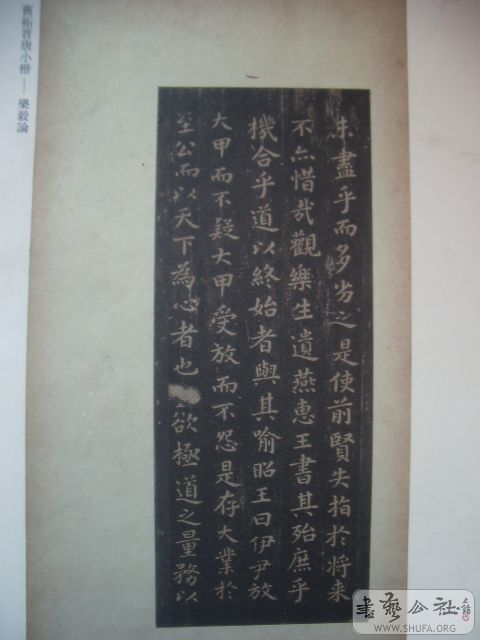 舊拓晋唐小楷——樂毅論
未盡乎而多劣之是使前賢失指於将来
不亦惜㢤觀樂生遺燕惠王書其殆庶乎
機合乎道以終始者與其喻昭王曰伊尹放
大甲而不疑大甲受放而不怨是存大業於
至公而以天下為心者也欲極道之量務以
書藝公社
WWW.SHUFA.ORG